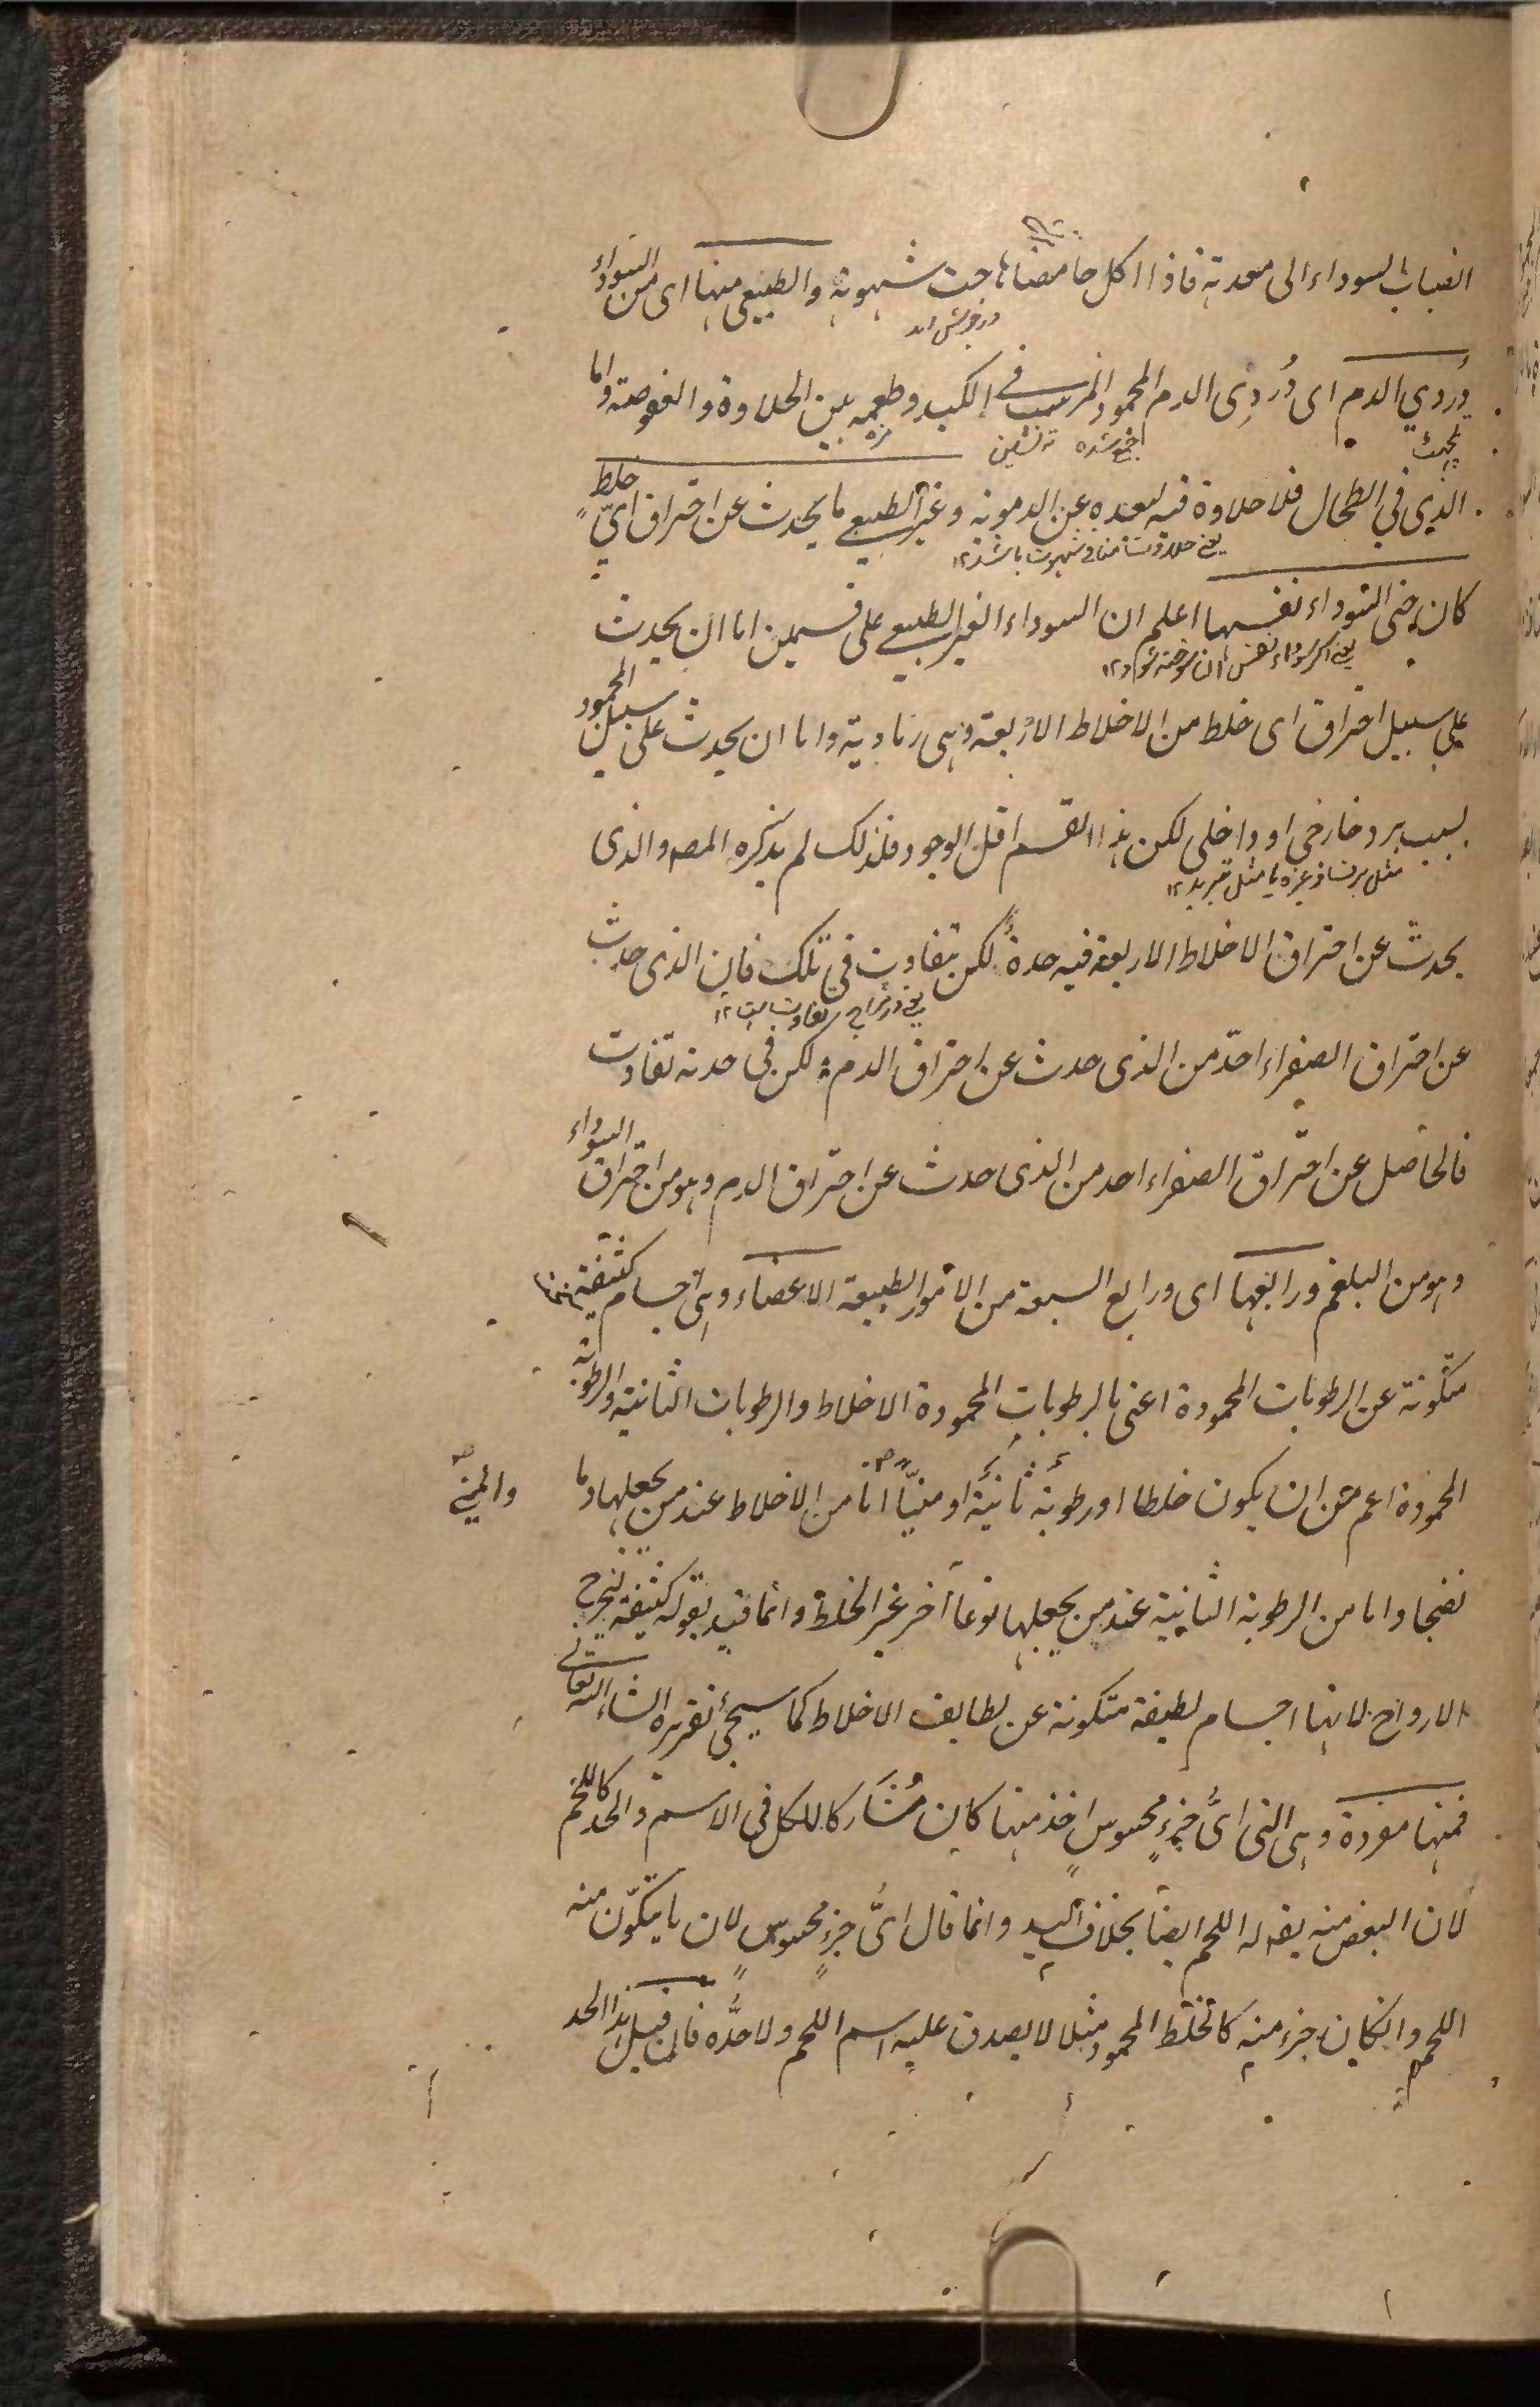 انصباب السوداء الى معدته فاذا اكل حامضا هاجت شهوته والطبيعى منها اى من السوداء
دردي الدم اى دُردِى الدم المحمود المترسب فى الكبد وطعمه بين الحلاوة والعفوصة واما
ته نشين
مزه
الذى في الطحال فلا حلاوة فيه لبعده عن الدموية وغير الطبيعى ما يحدث عن احتراق اىّ خلطٍ
كان حتى السوداء نفسها اعلم ان السوداء الغير الطبيعى على قسمين اما ان يحدث
على سبيل احتراق اى خلط من الاخلاط الاربعة وهى رمادية واما ان يحدث على سبيل الجمود
بسبب برد خارجى او داخلى لكن هذا القسم اقل الوجود فلذلك لم يذكره المصـ والذى
يحدث عن احتراق الاخلاط الاربعة فيه حدةٌ لكن يتفاوت فى تلك فان الذى حدث
عن احتراق الصفراء احدّ من الذى حدث عن احتراق الدم لكن فى حدته تفاوت
فالحاصل عن احتراق الصفراء احد من الذى حدث عن احتراق الدم وهو من احتراق السوداء
وهو من البلغم ورابعها اى ورابع السبعة من الامور الطبيعة الاعضاء وهى اجسام كثيفة
متكونة عن الرطوبات المحمودة اعنى بالرطوبات المحمودة الاخلاط والرطوبات الثانية والرطوبة
المحمودة اعم من ان يكون خلطا اورطوبة ثانيةً او منيّا اما من الاخلاط عند من يجعلها دما
والمنيّ
نضجا واما من الرطوبة الثانية عند من يجعلها نوعاً آخر غير الخلط وانما قيد بقوله كثيفة ليخرج
الارواح لانها اجسام لطيفة متكونة عن لطايف الاخلاط كما سيجئ تقريره انشاء الله تعالى
فمنها مفردة وهى التى اىُّ جزءٍ محسوسٍ اخذ منها كان مُشَاركا للكل فى الاسم والحد كاللحم
لان البعض منه يقع له اللحم ايضاً بخلاف اليد وانما قال اىُّ جزءٍ محسوسٍ لان ما يتكوّن منه
اللحم وانكان جزء منه كالخلط المحمود مثلا لا يصدق عليه اسم اللحم ولا حدُّه فان قيل هذا الحد